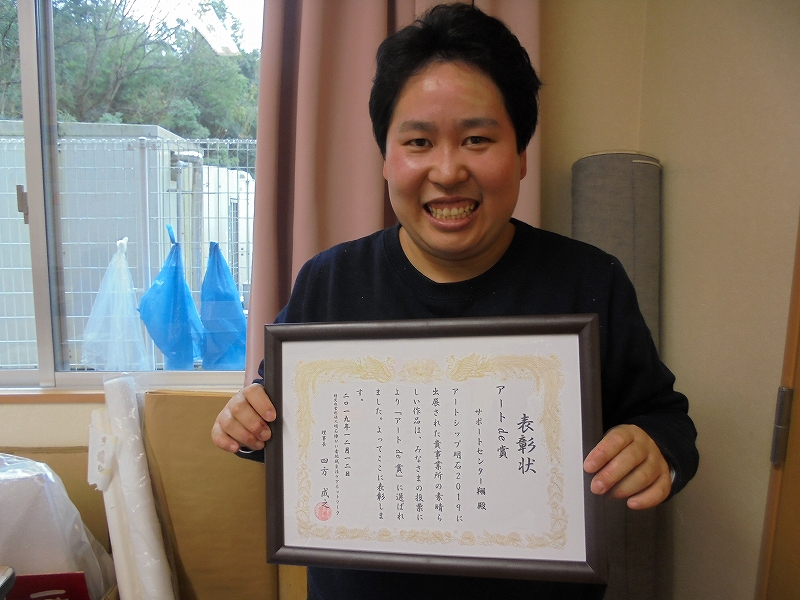 表彰状
アートde賞
サポートセンター翔 殿
アートシップ明石2019に
出展された貴事業所の素晴ら
しい作品は、みなさまの投票に
より「アートde賞」に選ばれ
ました。よってここに表彰しま
す。
二〇一九年一二月一二日
理事長 四方 成之